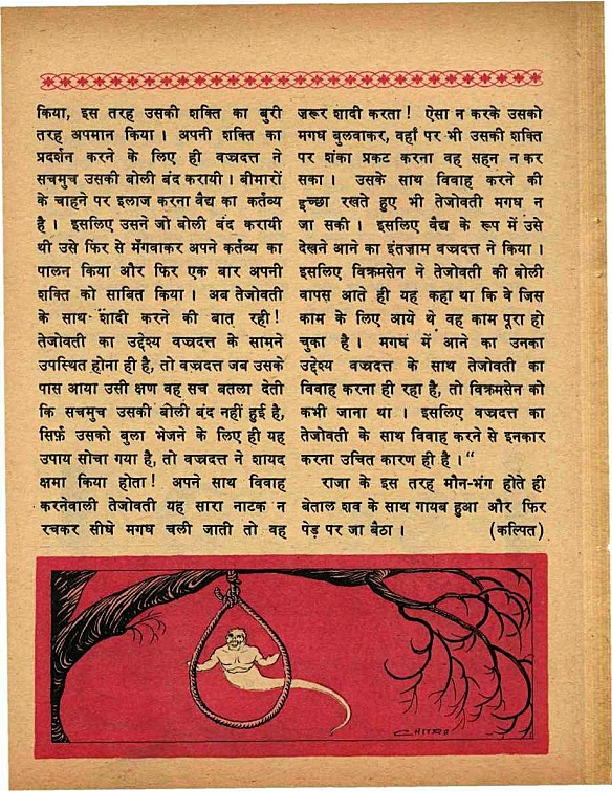 किया, इस तरह उसकी शक्ति का बुरी
तरह अपमान किया । अपनी शक्ति का
प्रदर्शन करने के लिए ही वज्रदत्त ने
सचमुच उसकी बोली बंद करायी । बीमारों
के चाहने पर इलाज करना वैद्य का कर्तव्य
है । इसलिए उसने जो बोली बंद करायी
थी उसे फिर से मँगवाकर अपने कर्तव्य का
पालन किया और फिर एक बार अपनी
शक्ति को साबित किया । अब तेजोवती
के साथ शादी करने की बात रही !
तेजोवती का उद्देश्य वज्रदत्त के सामने
उपस्थित होना ही है, तो वज्रदत्त जब उसके
पास आया उसी क्षण वह सच बतला देती
कि सचमुच उसकी बोली बंद नहीं हुई है,
सिर्फ़ उसको बुला भेजने के लिए ही यह
उपाय सोचा गया है, तो वज्रदत्त ने शायद
क्षमा किया होता ! अपने साथ विवाह
करनेवाली तेजोवती यह सारा नाटक न
रचकर सीधे मगध चली जाती तो वह
जरूर शादी करता ! ऐसा न करके उसको
मगध बुलवाकर, वहाँ पर भी उसकी शक्ति
पर शंका प्रकट करना वह सहन न कर
सका । उसके साथ विवाह करने की
इच्छा रखते हुए भी तेजोवती मगध न
जा सकी । इसलिए वैद्य के रूप में उसे
देखने आने का इंतज़ाम वज्रदत्त ने किया ।
इसलिए विक्रमसेन ने तेजोवती की बोली
वापस आते ही यह कहा था कि वे जिस
काम के लिए आये थे वह काम पूरा हो
चुका है । मगध में आने का उनका
उद्देश्य वज्रदत्त के साथ तेजोवती का
विवाह करना ही रहा है, तो विक्रमसेन को
कभी जाना था । इसलिए वज्रदत्त का
तेजोवती के साथ विवाह करने से इनकार
करना उचित कारण ही है ।“
राजा के इस तरह मौन-भंग होते ही
बेताल शव के साथ गायब हुआ और फिर
पेड़ पर जा बैठा । (कल्पित)
CHITRA